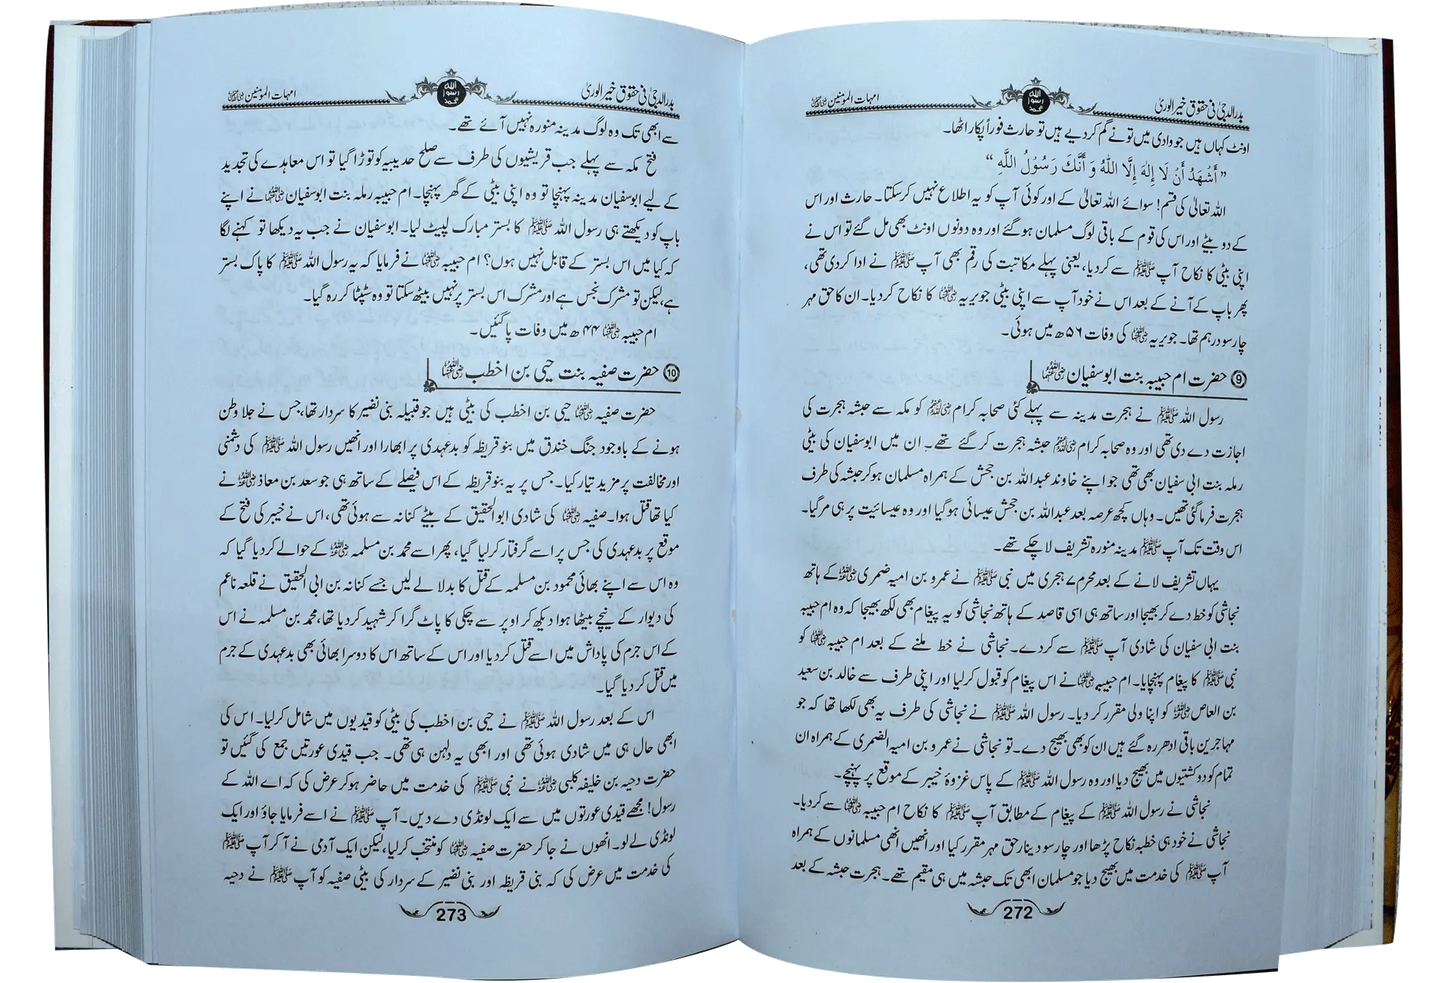 بدر الدجیٰ فی حقوق خیر الوریٰ
امہات المؤمنین رضی اللہ عنہن
اونٹ کہاں ہیں جو وادی میں تو نے گم کر دیے ہیں تو حارث فوراً پکار اٹھا۔
”أَشْهَدُ أَنْ لَا إِلٰهَ إِلَّا اللّٰهُ وَ أَنَّكَ رَسُوْلُ اللّٰهِ“
اللہ تعالیٰ کی قسم! سوائے اللہ تعالیٰ کے اور کوئی آپ کو یہ اطلاع نہیں کر سکتا۔ حارث اور اس
کے دو بیٹے اور اس کی قوم کے باقی لوگ مسلمان ہو گئے اور وہ دونوں اونٹ بھی مل گئے تو اس نے
اپنی بیٹی کا نکاح آپ ﷺ سے کر دیا، یعنی پہلے مکاتبت کی رقم بھی آپ ﷺ نے ادا کر دی تھی،
پھر باپ کے آنے کے بعد اس نے خود آپ سے اپنی بیٹی جویریہ رضی اللہ عنہا کا نکاح کر دیا۔ ان کا حق مہر
چار سو درہم تھا۔ جویریہ رضی اللہ عنہا کی وفات ۵۶ھ میں ہوئی۔
⑨ حضرت ام حبیبہ بنت ابو سفیان رضی اللہ عنہا
رسول اللہ ﷺ نے ہجرت مدینہ سے پہلے کئی صحابہ کرام رضی اللہ عنہم کو مکہ سے حبشہ ہجرت کی
اجازت دے دی تھی اور وہ صحابہ کرام رضی اللہ عنہم حبشہ ہجرت کر گئے تھے۔ ان میں ابوسفیان کی بیٹی
رملہ بنت ابی سفیان بھی تھی جو اپنے خاوند عبداللہ بن جحش کے ہمراہ مسلمان ہو کر حبشہ کی طرف
ہجرت فرما گئی تھیں۔ وہاں کچھ عرصہ بعد عبداللہ بن جحش عیسائی ہو گیا اور وہ عیسائیت پر ہی مر گیا۔
اس وقت تک آپ ﷺ مدینہ منورہ تشریف لا چکے تھے۔
یہاں تشریف لانے کے بعد محرم ۷ ہجری میں نبی ﷺ نے عمرو بن امیہ ضمری رضی اللہ عنہ کے ہاتھ
نجاشی کو خط دے کر بھیجا اور ساتھ ہی اسی قاصد کے ہاتھ نجاشی کو یہ پیغام بھی لکھ بھیجا کہ وہ ام حبیبہ
بنت ابی سفیان کی شادی آپ ﷺ سے کر دے۔ نجاشی نے خط ملنے کے بعد ام حبیبہ رضی اللہ عنہا کو
نبی ﷺ کا پیغام پہنچایا۔ ام حبیبہ رضی اللہ عنہا نے اس پیغام کو قبول کر لیا اور اپنی طرف سے خالد بن سعید
بن العاص رضی اللہ عنہ کو اپنا ولی مقرر کر دیا۔ رسول اللہ ﷺ نے نجاشی کی طرف یہ بھی لکھا تھا کہ جو
مہاجرین باقی ادھر رہ گئے ہیں ان کو بھی بھیج دے۔ تو نجاشی نے عمرو بن امیہ الضمری کے ہمراہ ان
تمام کو دو کشتیوں میں بھیج دیا اور وہ رسول اللہ ﷺ کے پاس غزوۂ خیبر کے موقع پر پہنچے۔
نجاشی نے رسول اللہ ﷺ کے پیغام کے مطابق آپ ﷺ کا نکاح ام حبیبہ رضی اللہ عنہا سے کر دیا۔
نجاشی نے خود ہی خطبہ نکاح پڑھا اور چار سو دینار حق مہر مقرر کیا اور انھیں انھی مسلمانوں کے ہمراہ
آپ ﷺ کی خدمت میں بھیج دیا جو مسلمان ابھی تک حبشہ میں ہی مقیم تھے۔ ہجرت حبشہ کے بعد
272
بدر الدجیٰ فی حقوق خیر الوریٰ
امہات المؤمنین رضی اللہ عنہن
سے ابھی تک وہ لوگ مدینہ منورہ نہیں آئے تھے۔
فتح مکہ سے پہلے جب قریشیوں کی طرف سے صلح حدیبیہ کو توڑا گیا تو اس معاہدے کی تجدید
کے لیے ابوسفیان مدینہ پہنچا تو وہ اپنی بیٹی کے گھر پہنچا۔ ام حبیبہ رملہ بنت ابوسفیان رضی اللہ عنہا نے اپنے
باپ کو دیکھتے ہی رسول اللہ ﷺ کا بستر مبارک لپیٹ لیا۔ ابوسفیان نے جب یہ دیکھا تو کہنے لگا
کہ کیا میں اس بستر کے قابل نہیں ہوں؟ ام حبیبہ رضی اللہ عنہا نے فرمایا کہ یہ رسول اللہ ﷺ کا پاک بستر
ہے، لیکن تو مشرک نجس ہے اور مشرک اس بستر پر نہیں بیٹھ سکتا تو وہ سٹپٹا کر رہ گیا۔
ام حبیبہ رضی اللہ عنہا ۴۴ھ میں وفات پا گئیں۔
⑩ حضرت صفیہ بنت حیی بن اخطب رضی اللہ عنہا
حضرت صفیہ رضی اللہ عنہا حیی بن اخطب کی بیٹی ہیں جو قبیلہ بنی نضیر کا سردار تھا، جس نے جلا وطن
ہونے کے باوجود جنگ خندق میں بنو قریظہ کو بدعہدی پر ابھارا اور انھیں رسول اللہ ﷺ کی دشمنی
اور مخالفت پر مزید تیار کیا۔ جس پر یہ بنو قریظہ کے اس فیصلے کے ساتھ ہی جو سعد بن معاذ رضی اللہ عنہ نے
کیا تھا قتل ہوا۔ صفیہ رضی اللہ عنہا کی شادی ابو الحقیق کے بیٹے کنانہ سے ہوئی تھی، اس نے خیبر کی فتح کے
موقع پر بدعہدی کی جس پر اسے گرفتار کر لیا گیا، پھر اسے محمد بن مسلمہ رضی اللہ عنہ کے حوالے کر دیا گیا کہ
وہ اس سے اپنے بھائی محمود بن مسلمہ کے قتل کا بدلا لے لیں جسے کنانہ بن ابی الحقیق نے قلعہ ناعم
کی دیوار کے نیچے بیٹھا ہوا دیکھ کر اوپر سے چکی کا پاٹ گرا کر شہید کر دیا تھا، محمد بن مسلمہ نے اس
کے اس جرم کی پاداش میں اسے قتل کر دیا اور اس کے ساتھ اس کا دوسرا بھائی بھی بدعہدی کے جرم
میں قتل کر دیا گیا۔
اس کے بعد رسول اللہ ﷺ نے حیی بن اخطب کی بیٹی کو قیدیوں میں شامل کر لیا۔ اس کی
ابھی حال ہی میں شادی ہوئی تھی اور ابھی یہ دلہن ہی تھی۔ جب قیدی عورتیں جمع کی گئیں تو
حضرت دحیہ بن خلیفہ کلبی رضی اللہ عنہ نے نبی ﷺ کی خدمت میں حاضر ہو کر عرض کی کہ اے اللہ کے
رسول! مجھے قیدی عورتوں میں سے ایک لونڈی دے دیں۔ آپ ﷺ نے اسے فرمایا جاؤ اور ایک
لونڈی لے لو۔ انھوں نے جا کر حضرت صفیہ رضی اللہ عنہا کو منتخب کر لیا، لیکن ایک آدمی نے آ کر آپ ﷺ
کی خدمت میں عرض کی کہ بنی قریظہ اور بنی نضیر کے سردار کی بیٹی صفیہ کو آپ ﷺ نے دحیہ
273